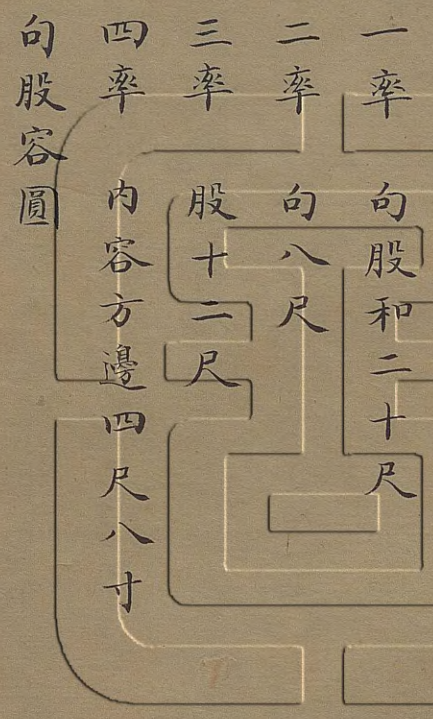 一率 句股和二十尺
二率 句八尺
三率 股十二尺
四率 內容方邊四尺八寸
句股容圓